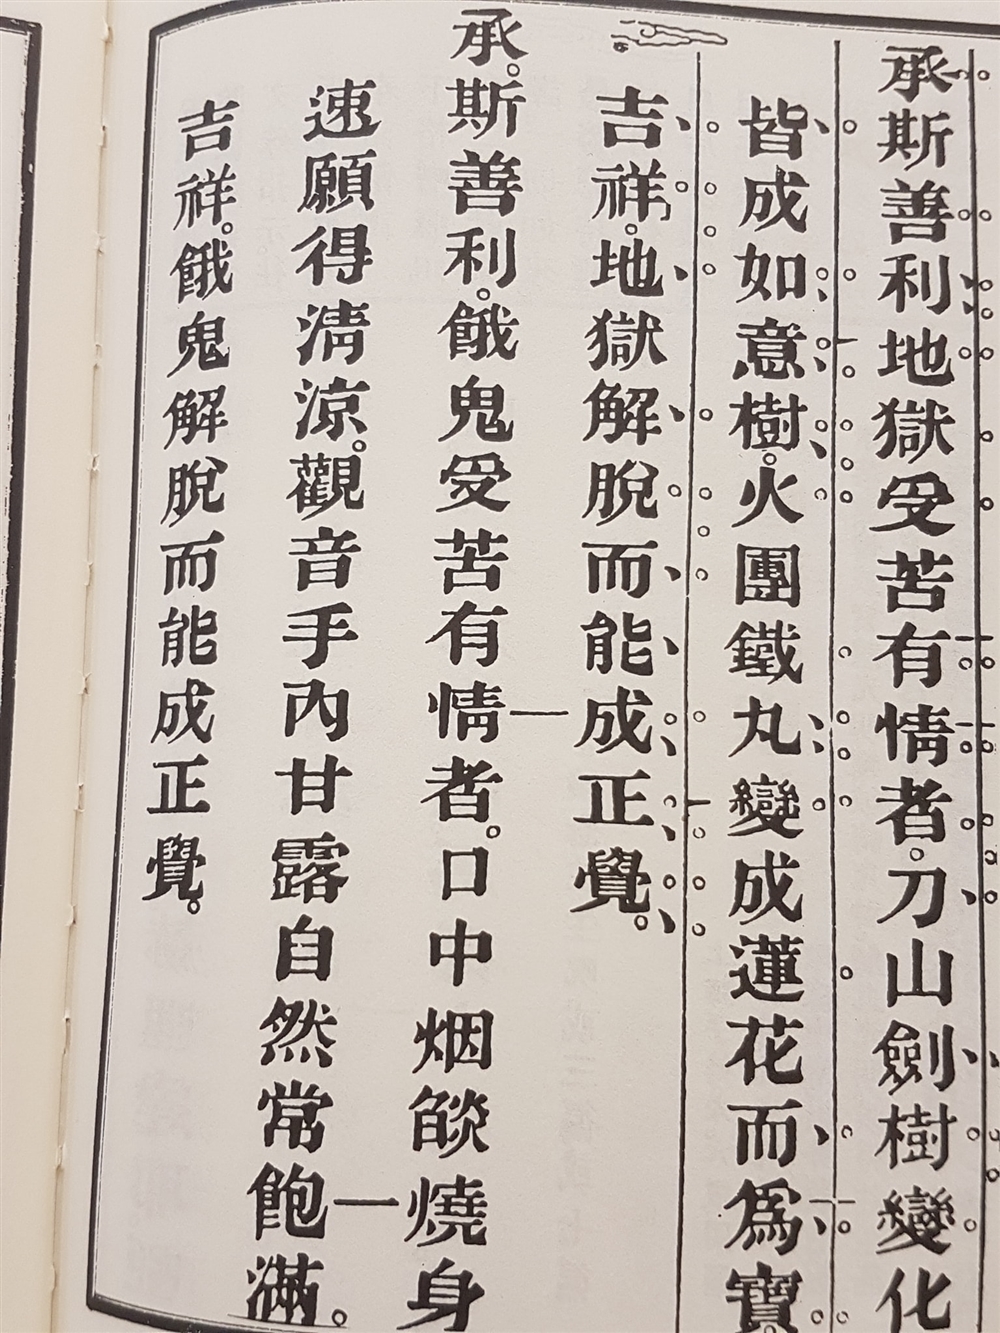 承斯善利地獄受苦有情者。刀山劍樹變化
皆成如意樹。火團鐵丸變成蓮花而爲寶。
吉祥。地獄解脫而能成正覺。
承。斯善利。餓鬼受苦有情者。口中烟燄燒身
速願得淸涼。觀音手內甘露自然常飽滿。
吉祥。餓鬼解脫而能成正覺。